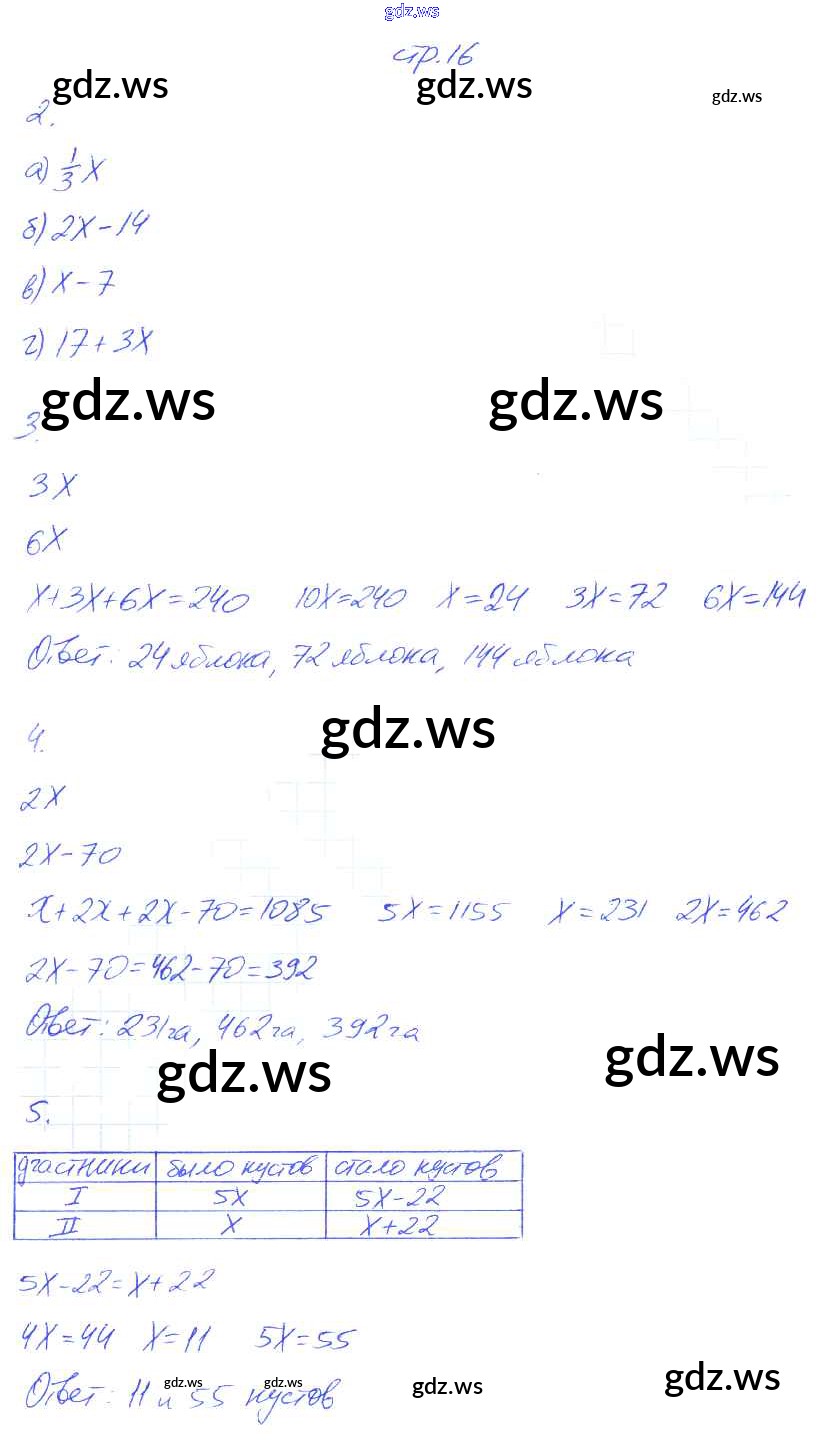 gdz.ws
стр.16
gdz.ws gdz.ws gdz.ws
2.
а) 1/3 x
б) 2x - 14
в) x - 7
г) 17 + 3x
gdz.ws gdz.ws
3.
3x
6x
x+3x+6x=240 10x=240 x=24 3x=72 6x=144
Ответ: 24 яблока, 72 яблока, 144 яблока
gdz.ws
4.
2x
2x-70
x+2x+2x-70=1085 5x=1155 x=231 2x=462
2x-70=462-70=392
Ответ: 231га, 462га, 392га
gdz.ws gdz.ws
5.
участники было кустов стало кустов
I 5x 5x-22
II x x+22
5x-22=x+22
4x=44 x=11 5x=55
Ответ: 11 и 55 кустов
gdz.ws gdz.ws gdz.ws gdz.ws